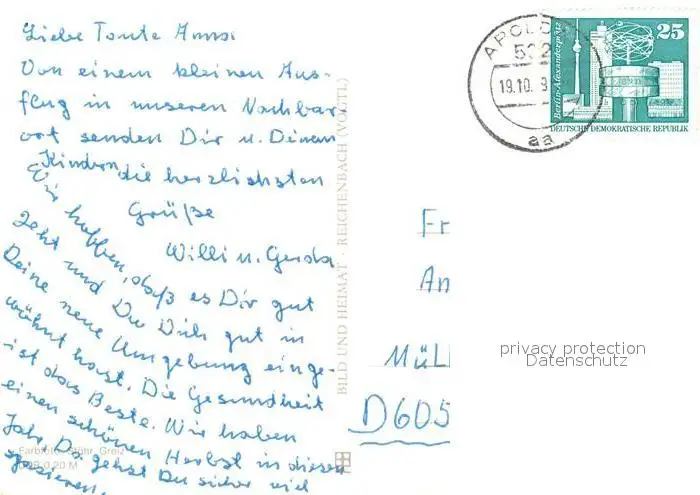 Liebe Tante Anna
Von einem kleinen Aus-
flug in unseren Nachbar-
ort senden Dir u. Deinen
Kindern die herzlichsten
Grüße
Willi u. Gerda
Wir hoffen, daß es Dir gut
geht und Du Dich gut in
Deine neue Umgebung einge-
wöhnt hast. Die Gesundheit
ist das Beste. Wir haben
einen schönen Herbst in diesem
Jahr. Da gehst Du sicher viel
spazieren.
Greiz
0,20 M
BILD UND HEIMAT · REICHENBACH (VOGTL.)
APOLD
532
19.10.9
aa
25
Berlin-Alexanderplatz
DEUTSCHE DEMOKRATISCHE REPUBLIK
Fr
An
MüLl
D605
privacy protection
Datenschutz